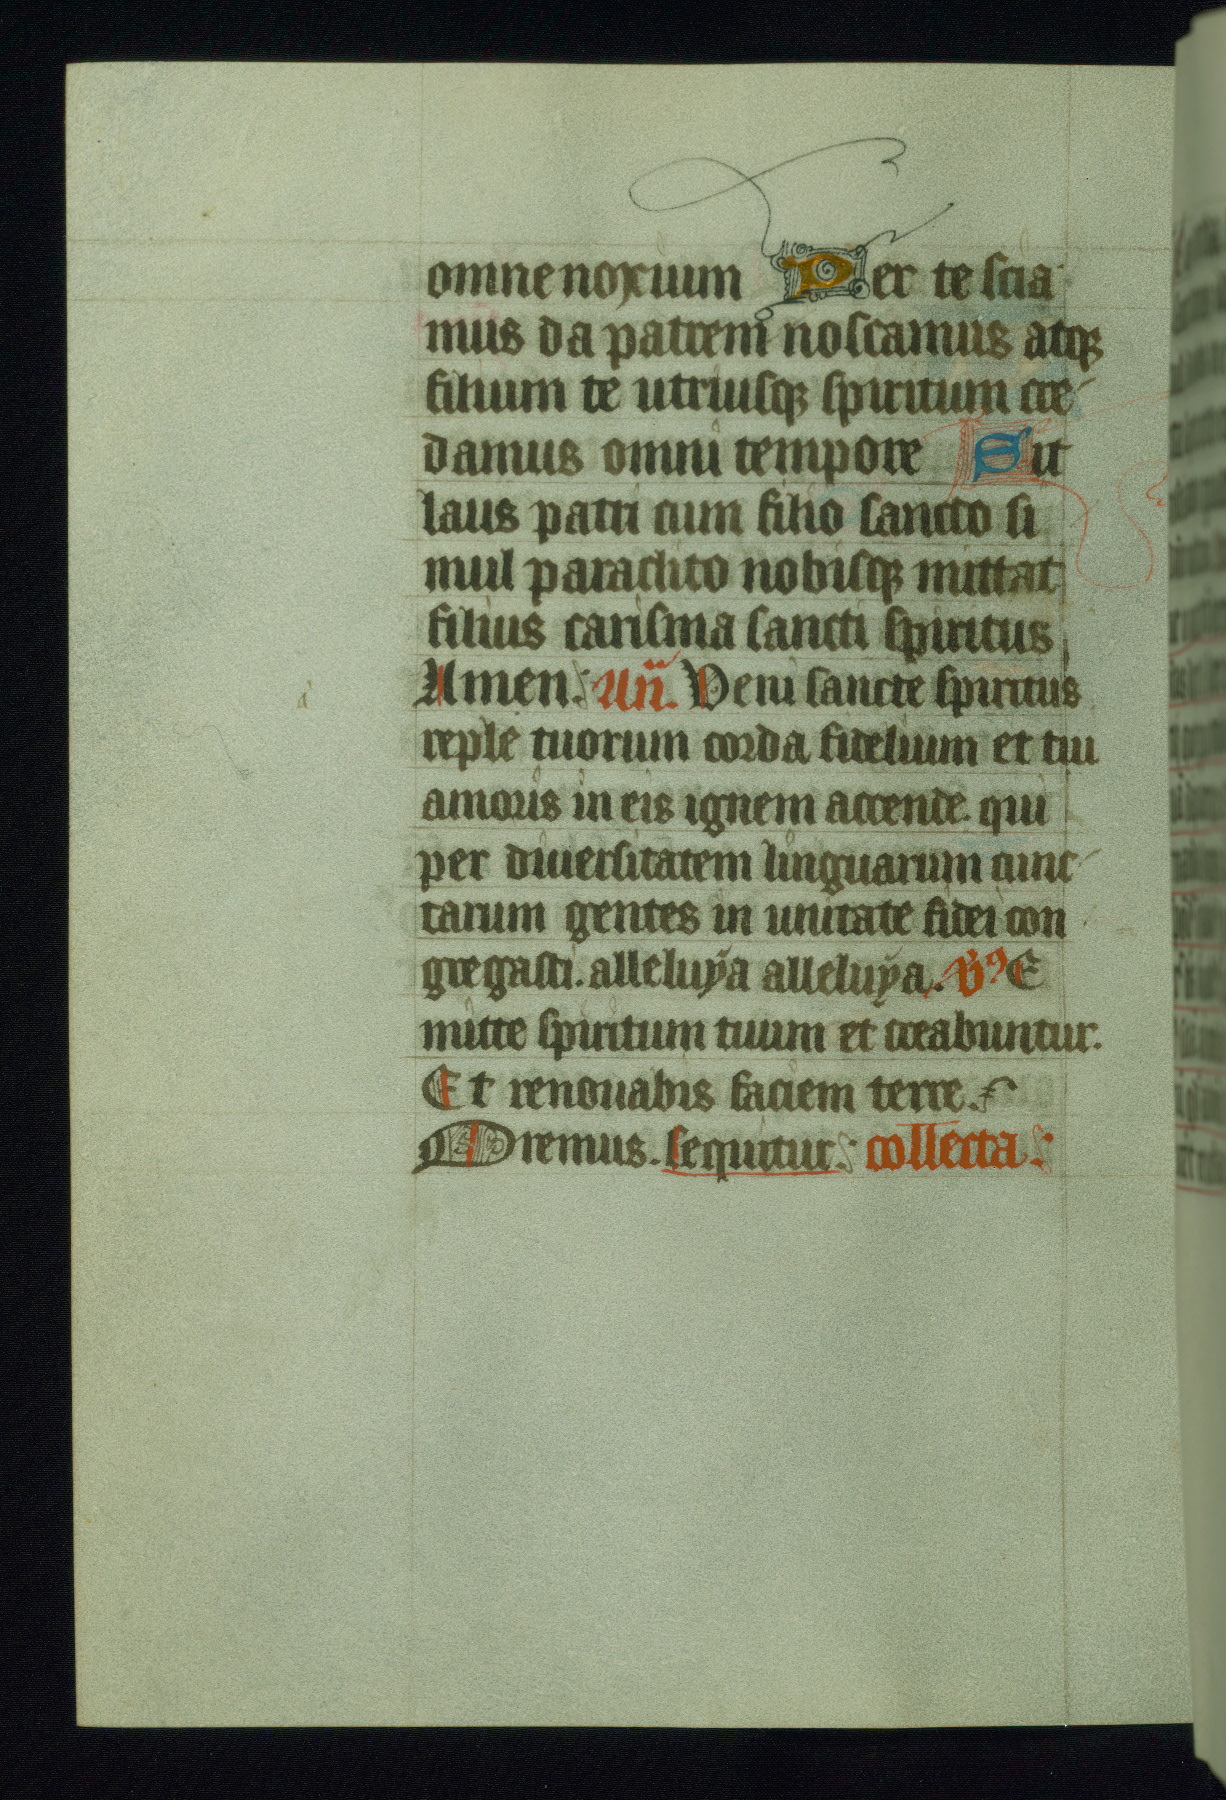 omne noxium Per te scia
mus da patrem noscamus atq;
filium te utriusq; spiritum cre
damus omni tempore Sit
laus patri cum filio sancto si
mul paraclito nobisq; mittat
filius carisma sancti spiritus
Amen. An̄. Veni sancte spiritus
reple tuorum corda fidelium et tui
amoris in eis ignem accende. qui
per diuersitatem linguarum cunc
tarum gentes in unitate fidei con
gregasti. alleluya alleluya. V̓9 E
mitte spiritum tuum et creabuntur.
Et renouabis faciem terre.
Oremus. sequitur: collecta: